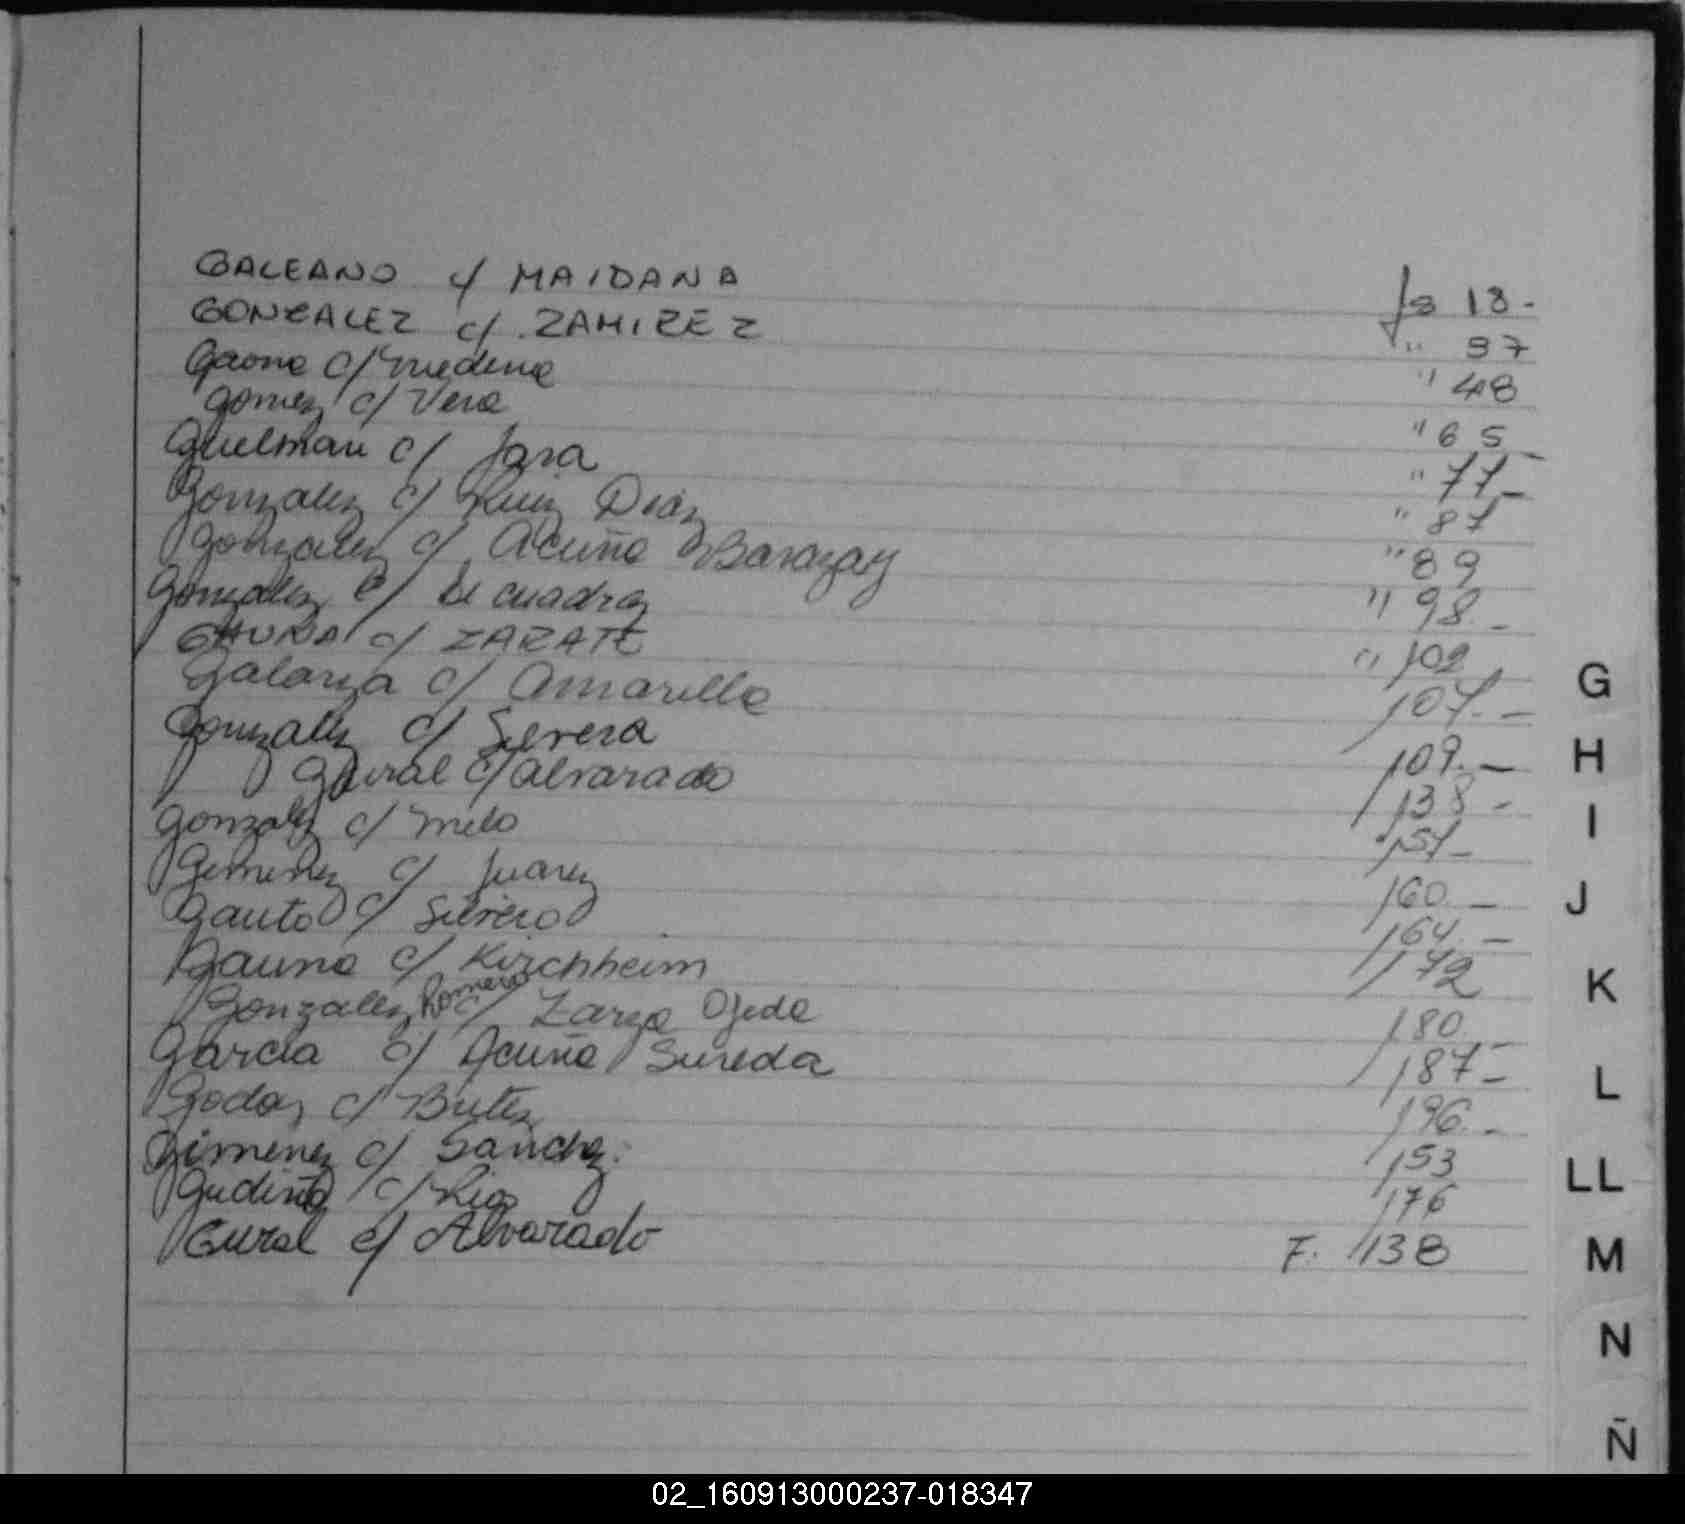 GALEANO c/ MAIDANA fs 18-
GONZALEZ c/ ZAMIREZ " 37
Gaona c/ Medina " 48
Gomez c/ Vera " 65
Guelman c/ Jara " 77-
Gonzalez c/ Ruiz Diaz " 87
Gonzalez c/ Acuña Barazay " 89
Gonzalez c/ De cuadra " 98.-
GAUNA c/ ZARATE " 102
Galarza c/ Amarilla 107.-
Gonzalez c/ Severa 109.-
Gural c/ Alvarado 138-
Gonzalez c/ Melo 151-
Gimenez c/ Juarez 160.-
Gauto c/ Silvero 164.-
Gauna c/ Kirchheim 172
Gonzalez Romero c/ Zarza Ojeda 180.-
Garcia c/ Acuña Sureda 187-
Godoy c/ Britez 196.-
Gimenez c/ Sanchez. 153
Gudiño c/ Rios 176
Gural c/ Alvarado F. 138
G
H
I
J
K
L
LL
M
N
Ñ
02_160913000237-018347